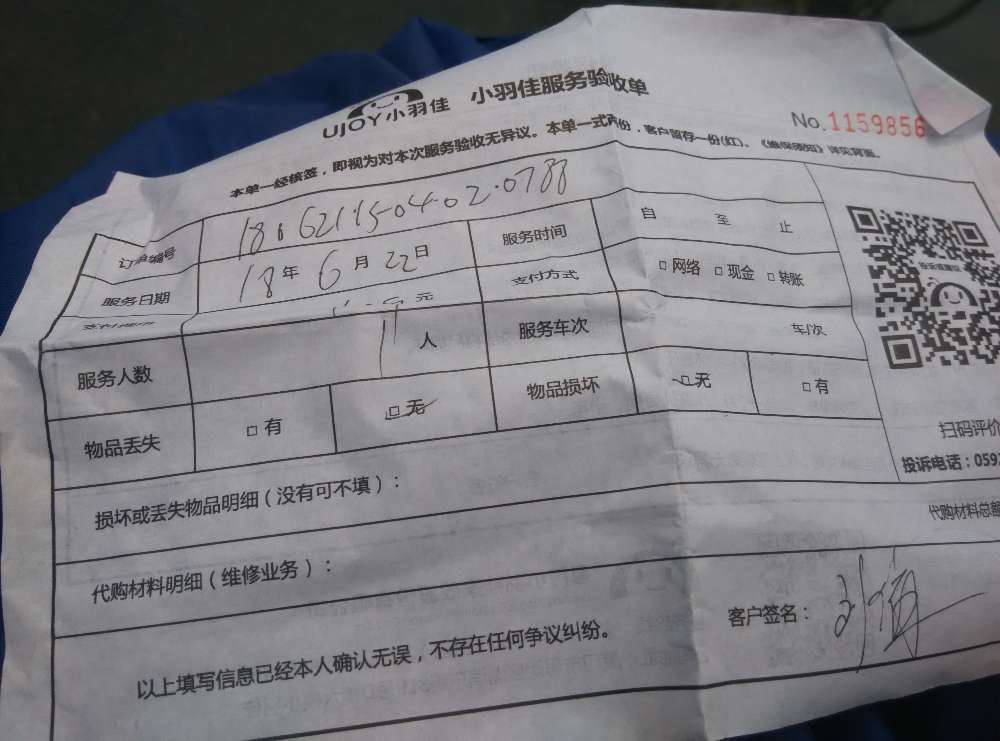 UJOY小羽佳 小羽佳服务验收单
No.1159856
本单一经核签，即视为对本次服务验收无异议。本单一式两份，客户留存一份(红)、《维保须知》详见背面。
订单编号
服务日期 18年 6月 22日 服务时间 自 至 止
元 支付方式 □网络 □现金 □转账
服务人数 人 服务车次 车/次
物品丢失 □有 □无 物品损坏 □无 □有
扫码评价
投诉电话：059
损坏或丢失物品明细（没有可不填）：
代购材料总额
代购材料明细（维修业务）：
客户签名：
以上填写信息已经本人确认无误，不存在任何争议纠纷。